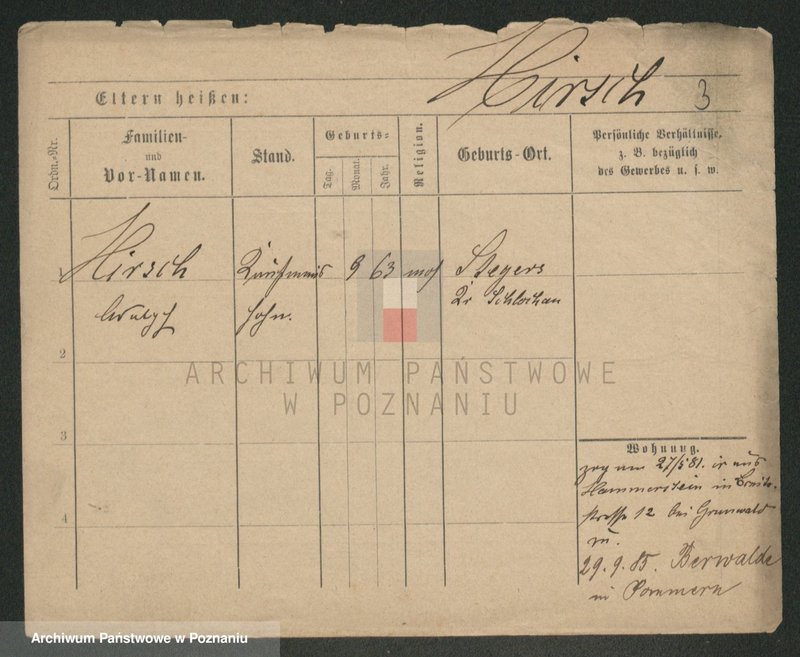 Hirsch 3
Eltern heißen:
Ordn.-Nr.
Familien-
und
Vor-Namen.
Stand.
Geburts-
Tag.
Monat.
Jahr.
Religion.
Geburts-Ort.
Persönliche Verhältnisse.
z. B. bezüglich
des Gewerbes u. s. w.
1 Hirsch Kaufmanns 9 63 mos Stegers
Kr Schlochau
sohn.
2
ARCHIWUM PAŃSTWOWE
W POZNANIU
3
4
Wohnung.
zog am 27/5 81. aus
Hammerstein in Breite-
strasse 12 bei Grunwald
29. 9. 85. Berwalde
in Pommern
Archiwum Państwowe w Poznaniu